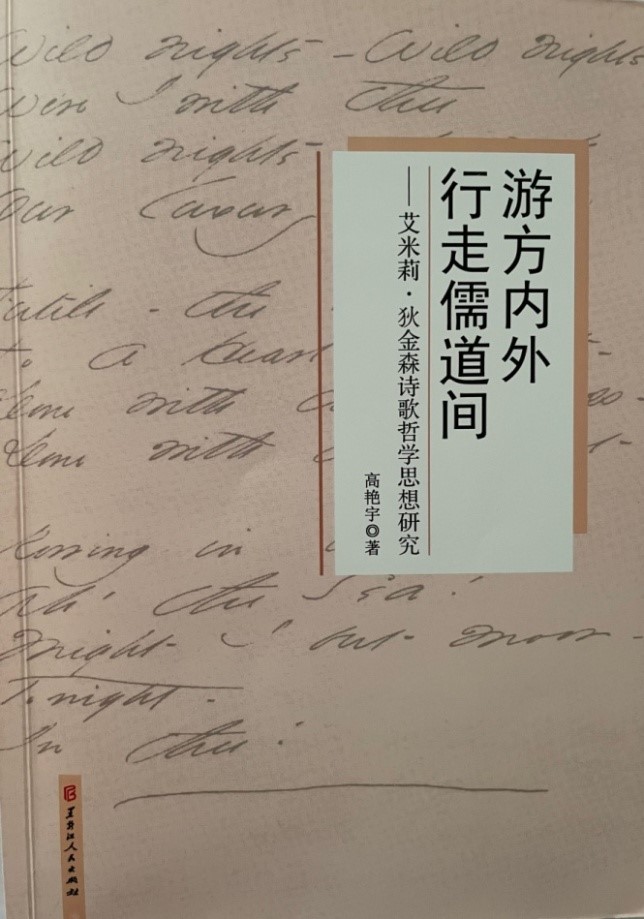 游方内外
行走儒道间
——艾米莉·狄金森诗歌哲学思想研究
高艳宇◎著
Wild nights - Wild nights
Were I with thee
Wild nights
Our Luxury
Futile - the
To a Heart
Done with
Done with
Rowing in
Ah! the Sea!
Might I but moor -
Tonight -
In thee!
黑龙江人民出版社